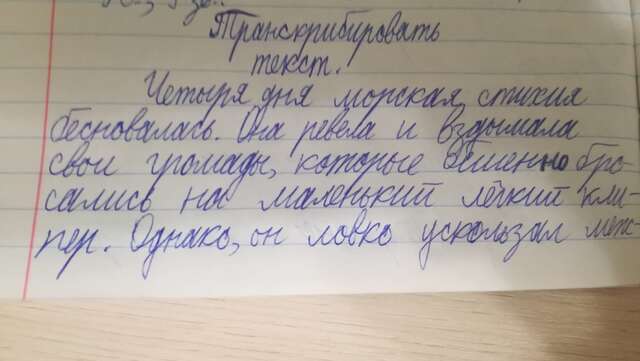 Транскрибировать
текст.
Четыря дня морская стихия
бесновалась. Она ревела и вздымала
свои громады, которые бешенно бро
сались на маленький лёгкий кли
пер. Однако, он ловко ускользал меж-